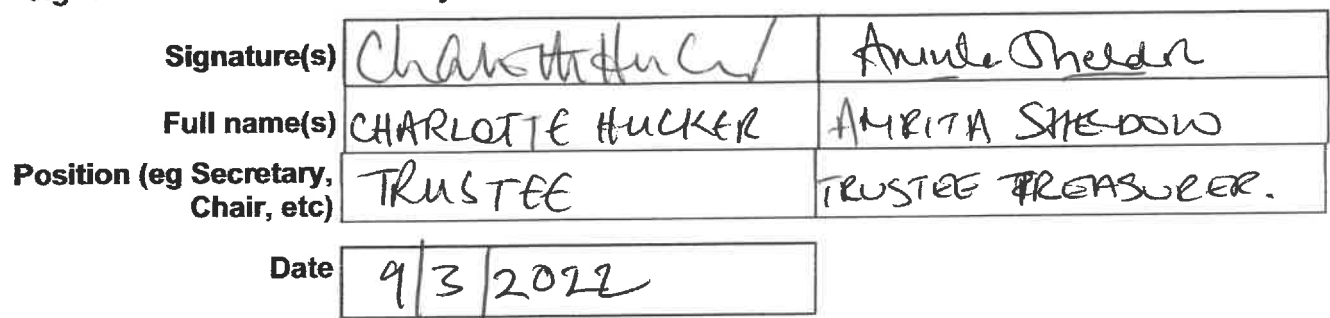 Signature(s) Charlotte Hucker Amrita Sheldon
Full name(s) CHARLOTTE HUCKER AMRITA SHEDOW
Position (eg Secretary, TRUSTEE TRUSTEE TREASURER.
Chair, etc)
Date 9/3/2022